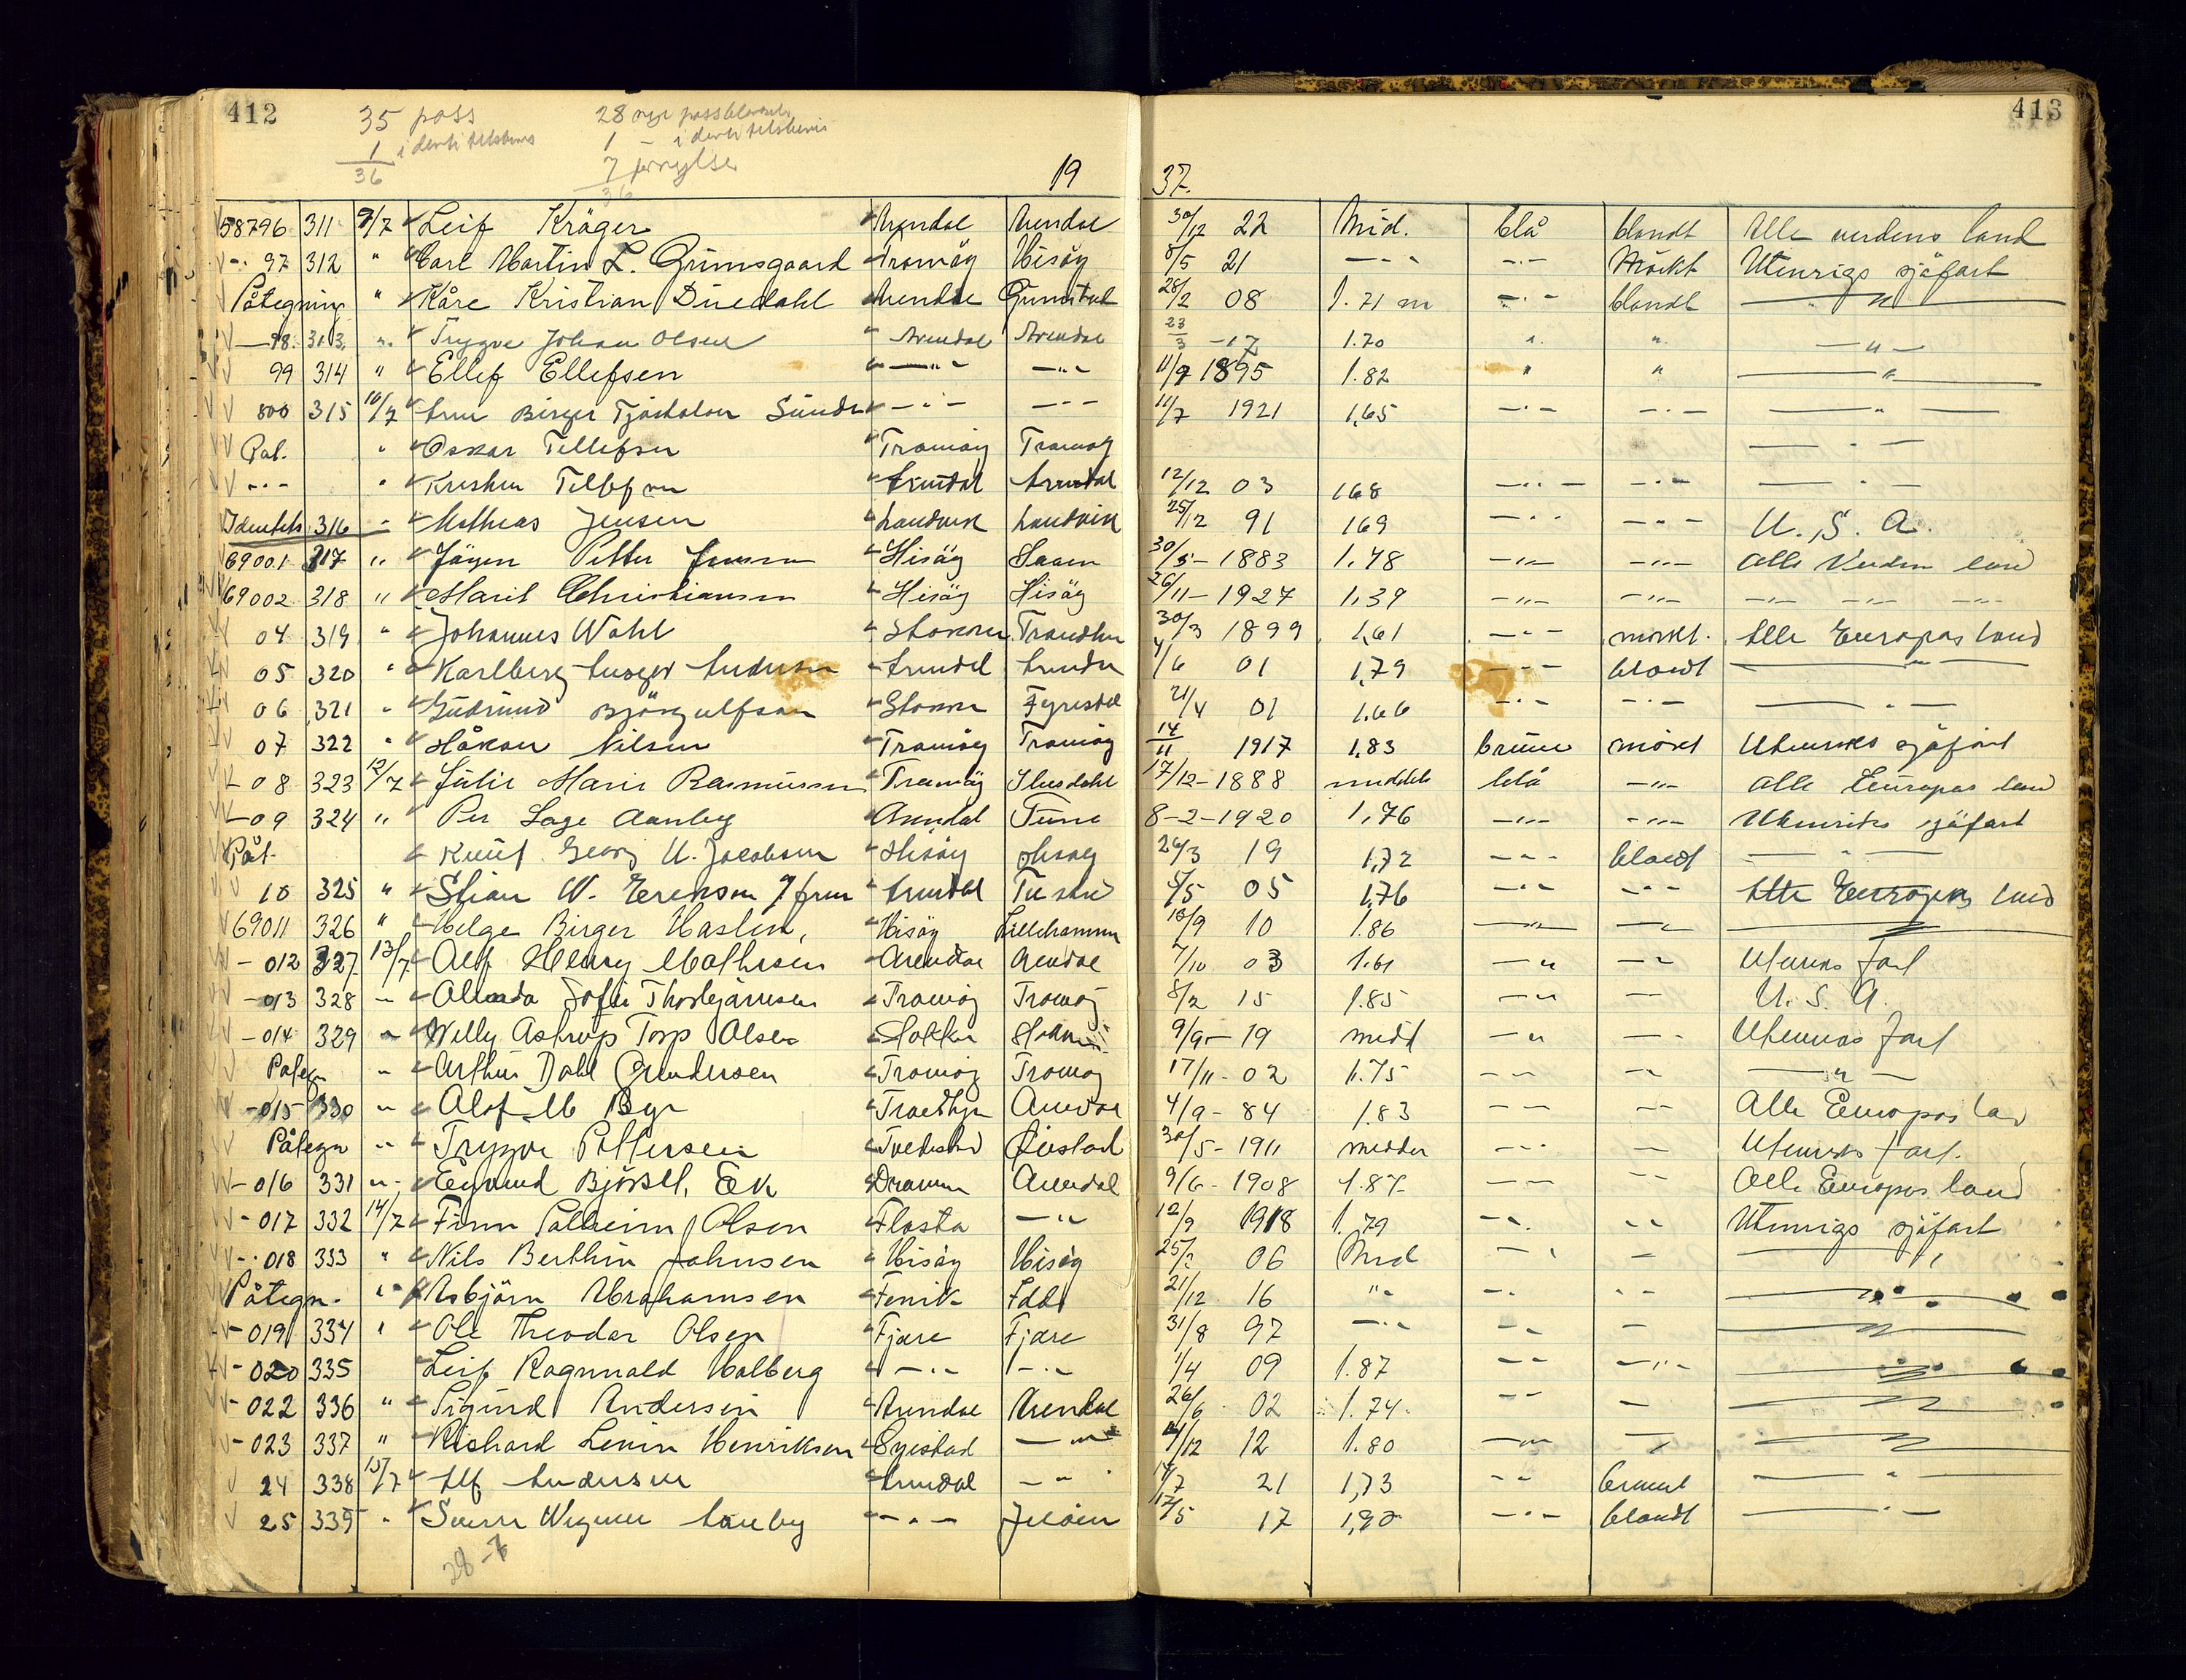 412
413
35 pass
28 nye
1 identitetsbevis
1 - identitetsbevis
36
7 fornyelse
36
19 37.
58796 311 9/7 Leif Kräger Arendal Arendal 30/12 22 Mid. blå blondt Alle verdens land
-"- 97 312 " Carl Martin L. Grimsgaard Tromöy Hisöy 8/5 21 -"- -"- Mörkt Utenrigs sjöfart
Påtegning " Kåre Kristian Duedahl Arendal Grimstad 28/2 08 1.71 m -"- blondt -"-
-98 313 " Trygve Johan Olsen Arendal Arendal 23/3 -17 1.70 " " -"-
99 314 " Ellef Ellefsen -"- -"- 11/9 1895 1.82 " " -"-
800 315 10/7 Birger -"- -"- 11/7 1921 1,65 -"- -"- -"-
Pat. " Oskar Tellefsen Tromöy Tromöy -"-
-"- " Tellefsen Arendal Arendal 12/12 03 168 -"- -"- -"-
316 " Mathias Jensen Landvik Landvik 25/12 91 169 -"- -"- U.S.A.
69001 317 " Jörgen Petter Hisöy 30/5-1883 1.78 -"- -"- Alle Verdens land
69002 318 " Marit Christiansen Hisöy Hisöy 26/11-1927 1,39 -"- -"- -"- -"- -"- -"-
04 319 " Johannes Wahl Stokken Trondhm 30/3 1899 1,61 -"- mörkt. Alle Europas land
05 320 " Karlberg Andersen Arendal 1/6 01 1,79 -"- blondt -"-
06 321 " Gudmund Björgulfsen Stokken Fyresdal 21/4 01 1.66 -"- -"- -"-
07 322 " Håkon Nilsen Tromöy Tromöy 14/11 1917 1,83 brune mörkt Utenriks sjöfart
08 323 12/7 Julie Marie Rasmussen Tromöy 17/12-1888 middels blå -"- Alle Europas land
-09 324 " Per Lage Aanby Arendal Tune 8-2-1920 1,76 -"- -"- Utenriks sjöfart
Påt. Knut Georg U. Jacobsen Hisöy Hisöy 24/3 19 1,72 -"- blondt -"-
10 325 " Stian W. Erikson Arendal 5/5 05 1,76 -"- -"- Alle Europas land
69011 326 " Helge Birger Haslin, Hisöy Lillehammer 18/9 10 1.86 -"- -"- -"-
- 012 327 13/7 Alf Henry Mathisen Arendal Arendal 7/10 03 1.61 -"- -"- Utenriks fart
-013 328 -"- Sofie Thorbjørnsen Tromöy Tromöy 8/2 15 1.85 -"- - U.S.A.
-014 329 -"- Willy Astrup Torp Olsen Stokken 9/9-19 midd -"- -"- Utenriks fart
Pategn -"- Arthur Dahl Gundersen Tromöy Tromöy 17/11-02 1.75 -"- -"- -"-
-015 330 -"- Olof M Arendal 4/9-84 1.83 -"- -"- Alle Europas land
Påtegn -"- Trygve Pettersen Tvedestrand Öiestad 30/5-1911 -"- - Utenriks fart.
-016 331 -"- Björset, Ek Dramm Arendal 9/6-1908 1.87 -"- -"- Alle Europas land
-017 332 14/7 Finn Palheim Olsen Flosta -"- 12/9 1918 1.79 -"- -"- Utenrigs sjöfart
-"-018 333 " Nils Berthin Johnsen Hisöy Hisöy 25/2 06 Mid -"- - -"-
Påtegn. -"- Asbjörn Abrahamsen 21/12 16 "- -"- -"- -"-
-019 334 " Ole Theodor Olsen Fjære Fjære 31/8 97 -"- -"- - -"-
-020 335 Leif Ragnvald Halberg -"- -"- 1/4 09 1.87 -"- -"- -"-
-022 336 " Sigurd Andersen Arendal Arendal 26/6 02 1.74. -"- - -"-
-023 337 " Richard Lenin Henriksen -"- 12 1.80 -"- - -"-
24 338 15/7 Alf Andersen Arendal -"- 14/7 21 1,73 -"- brunt -"-
25 339 " Sverre Wegner Aanby -"- Jelöen 17/5 17 1,90 -"- blondt -"-
28-7